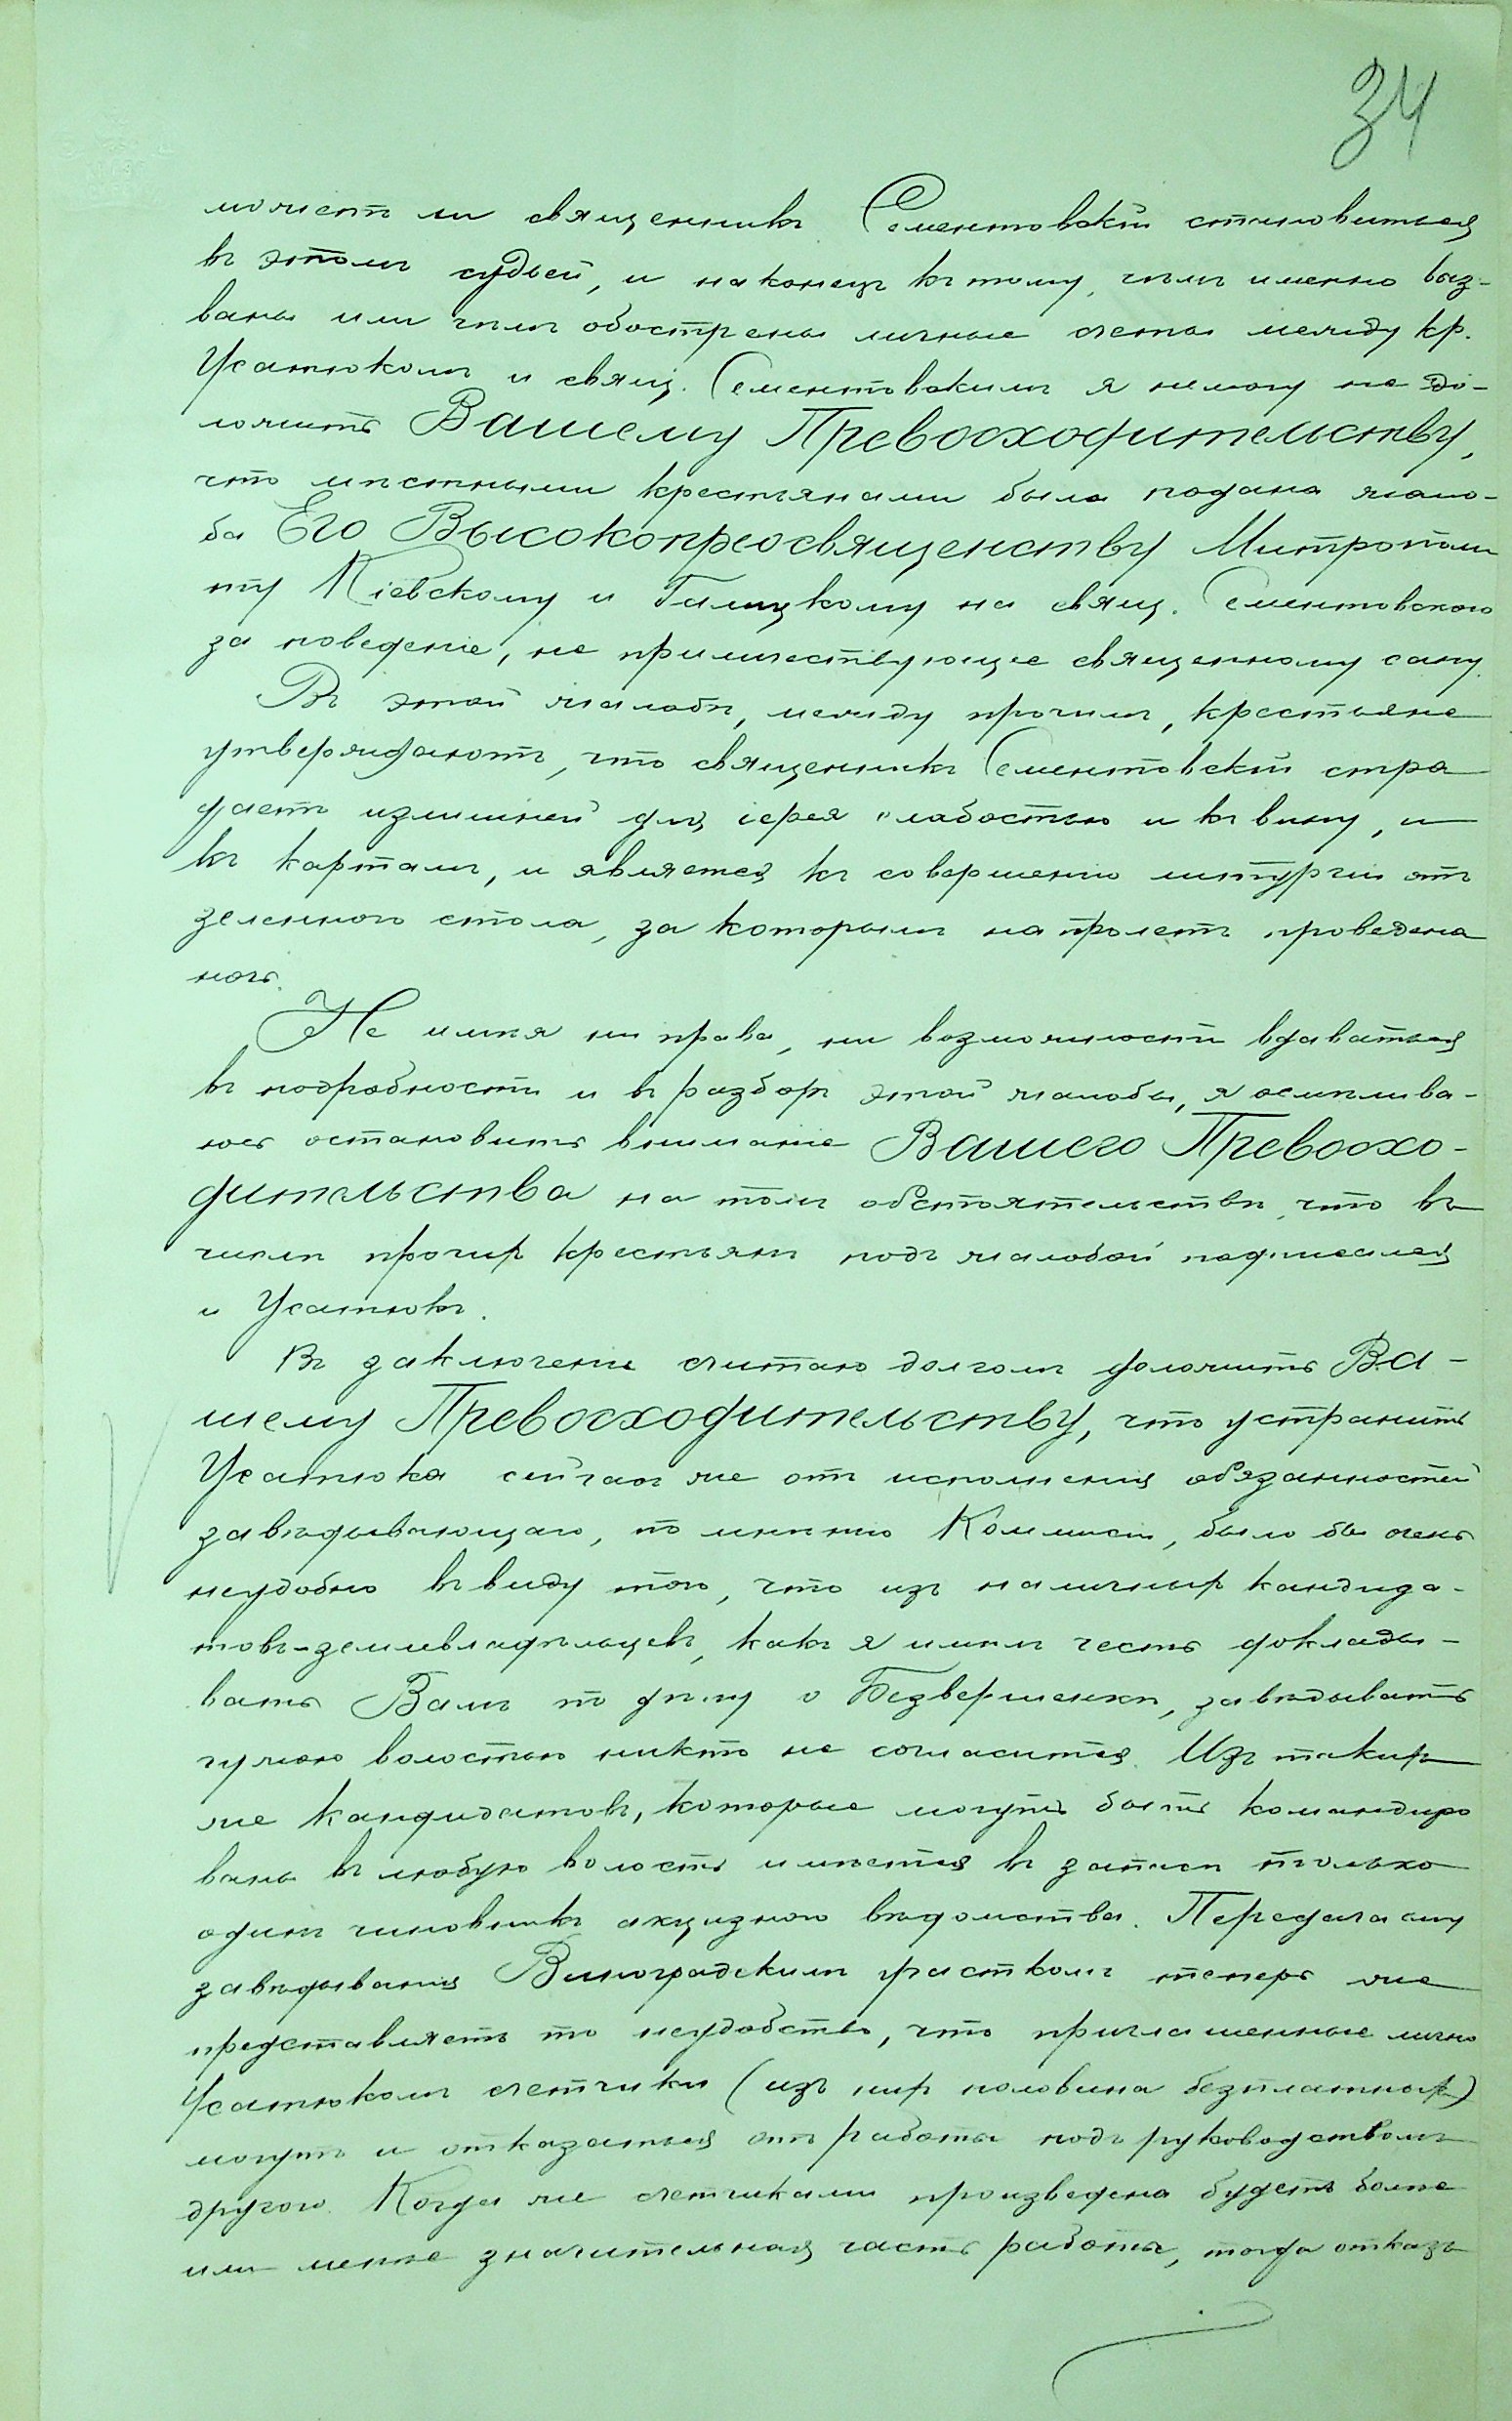 34
можетъ ли священникъ Сементовскій становиться
въ этомъ судьей, и наконецъ къ тому, чѣмъ именно выз-
ваны или чѣмъ обострены личные счеты между кр.
Усатюкомъ и свящ. Сементовскимъ я немогу не до-
ложить Вашему Превосходительству,
что мѣстными крестьянами была подана жало-
ба Его Высокопреосвященству Митрополи
ту Кіевскому и Галицкому на свящ. Сементовского
за поведеніе, не приличествующее священному сану.
Въ этой жалобѣ, между прочимъ, крестьяне
утверждаютъ, что священникъ Сементовскій стра
даетъ излишней для іерея слабостью и къ вину, и
къ картамъ, и является къ совершенію литургіи отъ
зеленного стола, за которымъ напролетъ проведена
ночь.
Не имѣя ни права, ни возможности вдаваться
въ подробности и въ разборъ этой жалобы, я осмѣлива-
юсь остановить вниманіе Вашего Превосхо-
дительства на томъ обстоятельствѣ, что въ
числѣ прочихъ крестьянъ подъ жалобой подписался
и Усатюкъ.
Въ заключеніи считаю долгомъ доложить Ва-
шему Превосходительству, что устранить
Усатюка сейчасъ же отъ исполненія обязанностей
завѣдывающаго, по мнѣнію Коммисіи, было бы очень
неудобно въ виду того, что изъ наличныхъ кандида-
товъ-землевладѣльцевъ, какъ я имѣлъ честь доклады-
вать Вамъ по дѣлу о Безвершенкѣ, завѣдывать
чужою волостью никто не согласится. Изъ такихъ
же кандидатовъ, которые могутъ быть командиро
ваны въ любую волость имѣется въ запасѣ только
одинъ чиновникъ акцизного вѣдомства. Передача ему
завѣдыванія Виноградскимъ участкомъ теперь же
представляетъ то неудобство, что приглашенные лично
Усатюкомъ счетчики (изъ нихъ половина безплатныхъ)
могутъ и отказаться отъ работы подъ руководствомъ
другого. Когда же счетчиками произведена будетъ болѣе
или менѣе значительная часть работы, тогда отказъ